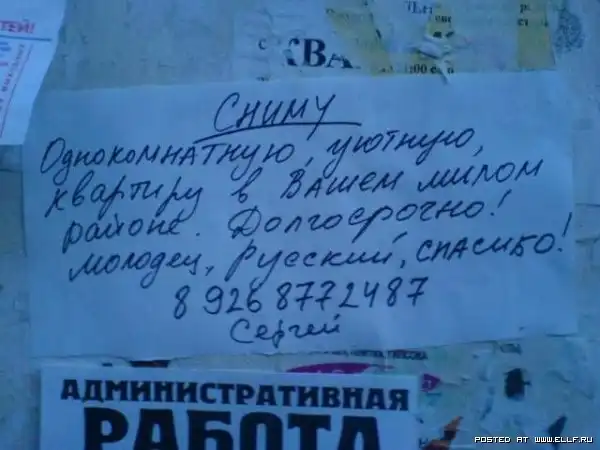 ТЕЙ!
КВА
СНИМУ
Однокомнатную, уютную,
квартиру в Вашем милом
районе. Долгосрочно!
молодец, русский, спасибо!
8 926 8772487
Сергей
АДМИНИСТРАТИВНАЯ
РАБОТА
POSTED AT WWW.ELLF.RU